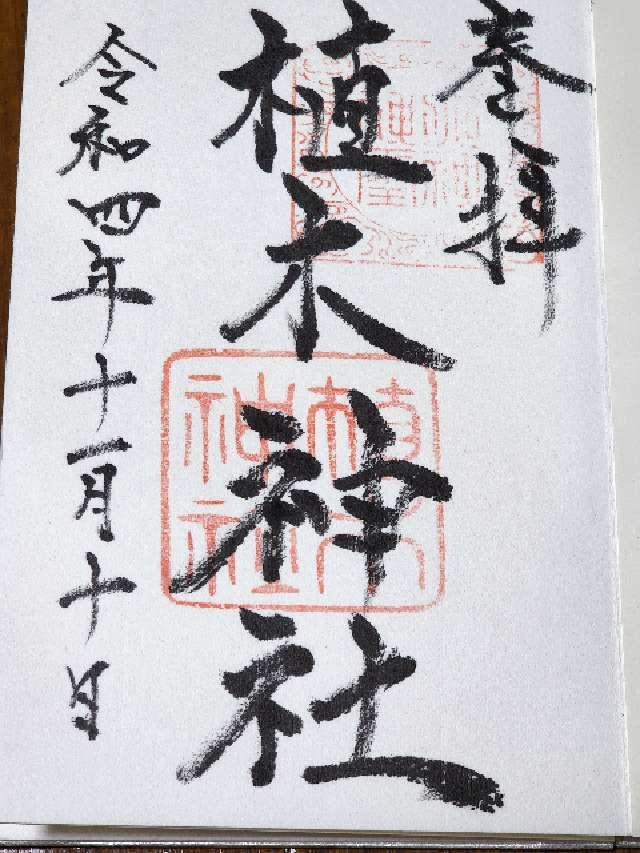 奉拝
植木神社
令和四年十一月十日
植木
神社